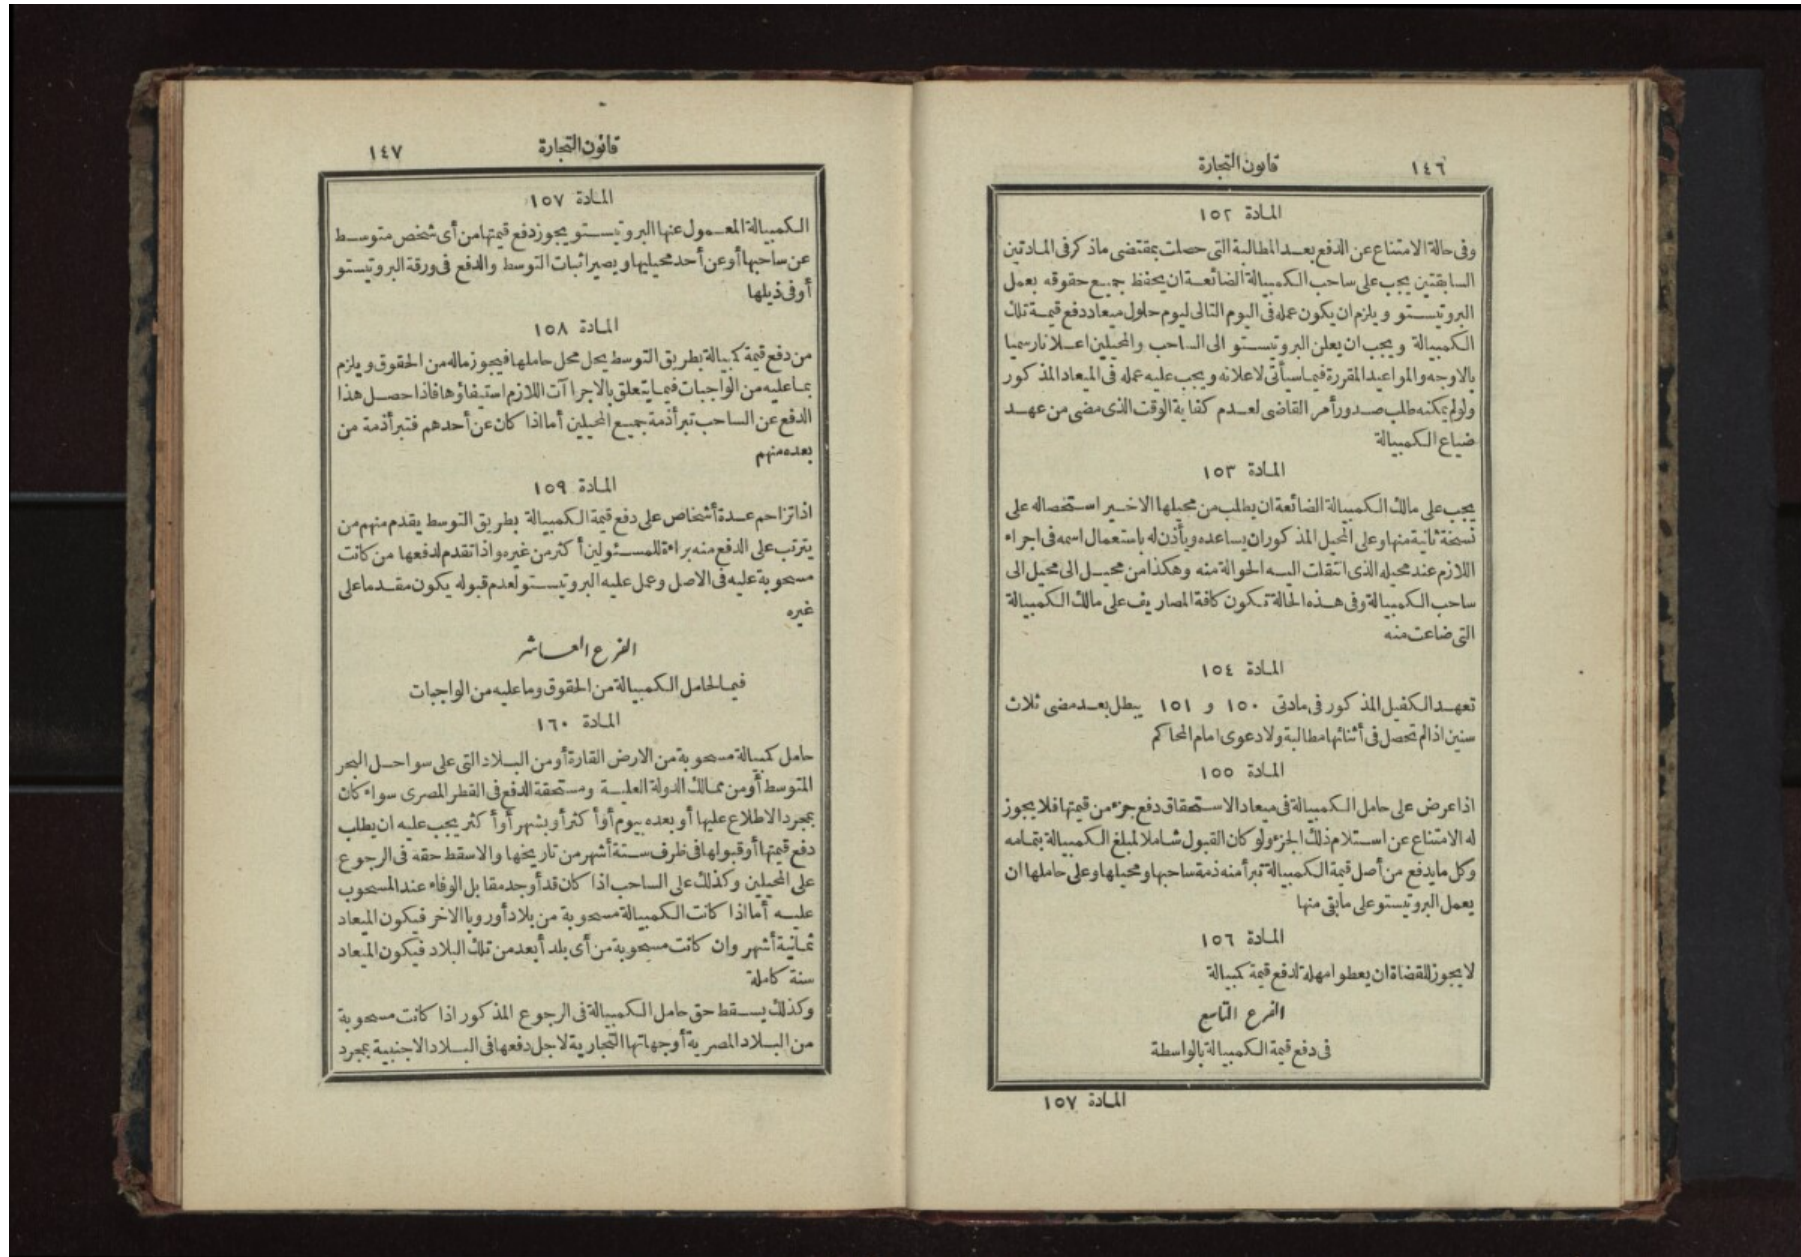 ١٤٦
قانون التجارة
المادة ١٥٢
وفى حالة الامتناع عن الدفع بعد المطالبة التى حصلت بمقتضى ماذكر فى المادتين
السابقتين يجب على صاحب الكمبيالة الضائعة ان يحفظ جميع حقوقه بعمل
البروتيستو ويلزم ان يكون عمله فى اليوم التالى ليوم حلول ميعاد دفع قيمة تلك
الكمبيالة ويجب ان يعلن البروتيستو الى الساحب والمحيلين اعلانا رسميا
بالاوجه والمواعيد المقررة فيما سيأتى لاعلانه ويجب عليه عمله فى الميعاد المذكور
ولو لم يمكنه طلب صدور أمر القاضى لعدم كفاية الوقت الذى مضى من عهد
ضياع الكمبيالة
المادة ١٥٣
يجب على مالك الكمبيالة الضائعة ان يطلب من محيلها الاخير استحصاله على
نسخة ثانية منها وعلى المحيل المذكور ان يساعده ويأذن له باستعمال اسمه فى اجراء
اللازم عند محيله الذى انتقلت اليه الحوالة منه وهكذا من محيل الى محيل الى
ساحب الكمبيالة وفى هذه الحالة تكون كافة المصاريف على مالك الكمبيالة
التى ضاعت منه
المادة ١٥٤
تعهد الكفيل المذكور فى مادتى ١٥٠ و ١٥١ يبطل بعد مضى ثلاث
سنين اذا لم تحصل فى أثنائها مطالبة ولا دعوى امام المحاكم
المادة ١٥٥
اذا عرض على حامل الكمبيالة فى ميعاد الاستحقاق دفع جزء من قيمتها فلا يجوز
له الامتناع عن استلام ذلك الجزء ولو كان القبول شاملا لمبلغ الكمبيالة بتمامه
وكل ما يدفع من أصل قيمة الكمبيالة تبرأ منه ذمة ساحبها ومحيلها وعلى حاملها ان
يعمل البروتيستو على ما بقى منها
المادة ١٥٦
لا يجوز للقضاة ان يعطوا مهلة لدفع قيمة كمبيالة
الفرع التاسع
فى دفع قيمة الكمبيالة بالواسطة
المادة ١٥٧
قانون التجارة
١٤٧
المادة ١٥٧
الكمبيالة المعمول عنها البروتيستو يجوز دفع قيمتها من أى شخص متوسط
عن ساحبها أو عن أحد محيليها ويصير اثبات التوسط والدفع فى ورقة البروتيستو
أو فى ذيلها
المادة ١٥٨
من دفع قيمة كمبيالة بطريق التوسط يحل محل حاملها فيحوز ماله من الحقوق ويلزم
بما عليه من الواجبات فيما يتعلق بالاجراآت اللازم استيفاؤها فاذا حصل هذا
الدفع عن الساحب تبرأ ذمة جميع المحيلين أما اذا كان عن أحدهم فتبرأ ذمة من
بعده منهم
المادة ١٥٩
اذا تزاحم عدة أشخاص على دفع قيمة الكمبيالة بطريق التوسط يقدم منهم من
يترتب على الدفع منه براءة للمسئولين أكثر من غيره واذا تقدم لدفعها من كانت
مسحوبة عليه فى الاصل وعمل عليه البروتيستو لعدم قبوله يكون مقدما على
غيره
الفرع العاشر
فيما لحامل الكمبيالة من الحقوق وما عليه من الواجبات
المادة ١٦٠
حامل كمبيالة مسحوبة من الارض القارة أو من البلاد التى على سواحل البحر
المتوسط أو من ممالك الدولة العلية ومستحقة الدفع فى القطر المصرى سواء كان
بمجرد الاطلاع عليها أو بعده بيوم أو أكثر أو بشهر أو أكثر يجب عليه ان يطلب
دفع قيمتها أو قبولها فى ظرف ستة أشهر من تاريخها والا سقط حقه فى الرجوع
على المحيلين وكذلك على الساحب اذا كان قد أوجد مقابل الوفاء عند المسحوب
عليه أما اذا كانت الكمبيالة مسحوبة من بلاد أوروبا الاخر فيكون الميعاد
ثمانية أشهر وان كانت مسحوبة من أى بلد أبعد من تلك البلاد فيكون الميعاد
سنة كاملة
وكذلك يسقط حق حامل الكمبيالة فى الرجوع المذكور اذا كانت مسحوبة
من البلاد المصرية أو جهاتها التجارية لاجل دفعها فى البلاد الاجنبية بمجرد